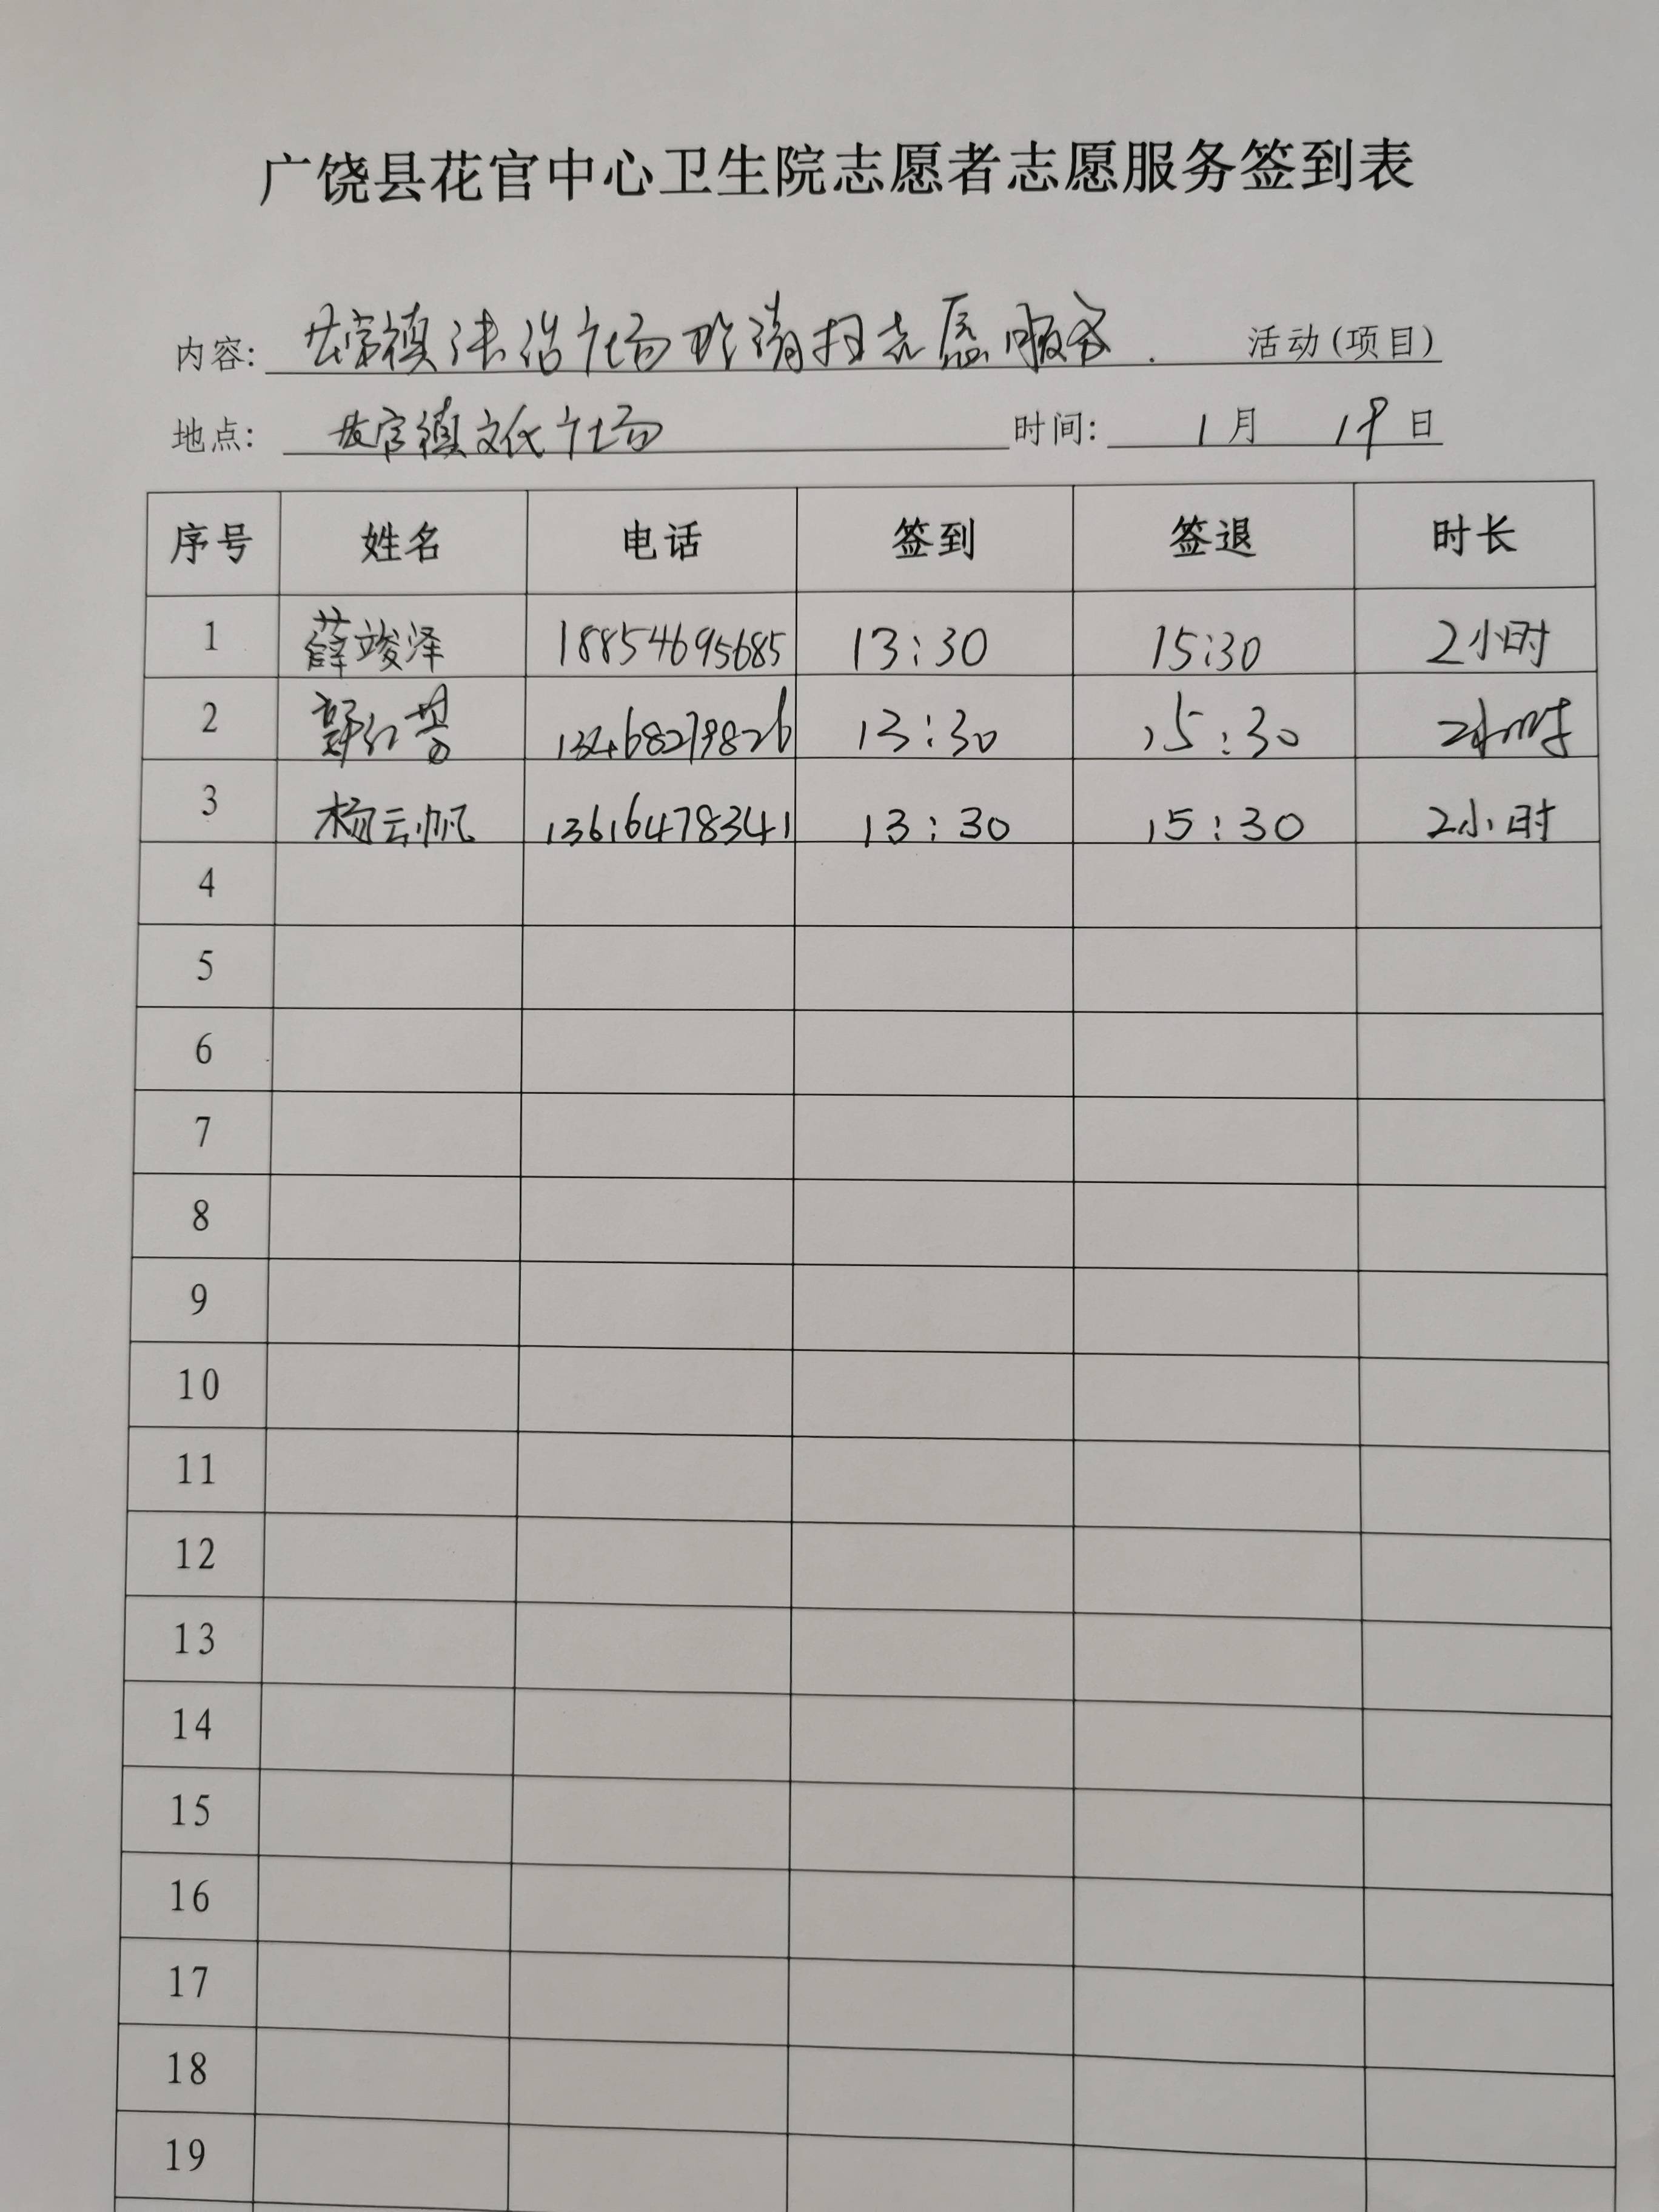 广饶县花官中心卫生院志愿者志愿服务签到表
内容: 花官镇法治广场 清扫志愿服务. 活动(项目)
地点: 花官镇文化广场 时间: 1月 19日
序号 姓名 电话 签到 签退 时长
1 薛竣泽 18854695685 13:30 15:30 2小时
2 红 13468279826 13:30 15:30 2小时
3 杨云帆 13616478341 13:30 15:30 2小时
4
5
6
7
8
9
10
11
12
13
14
15
16
17
18
19